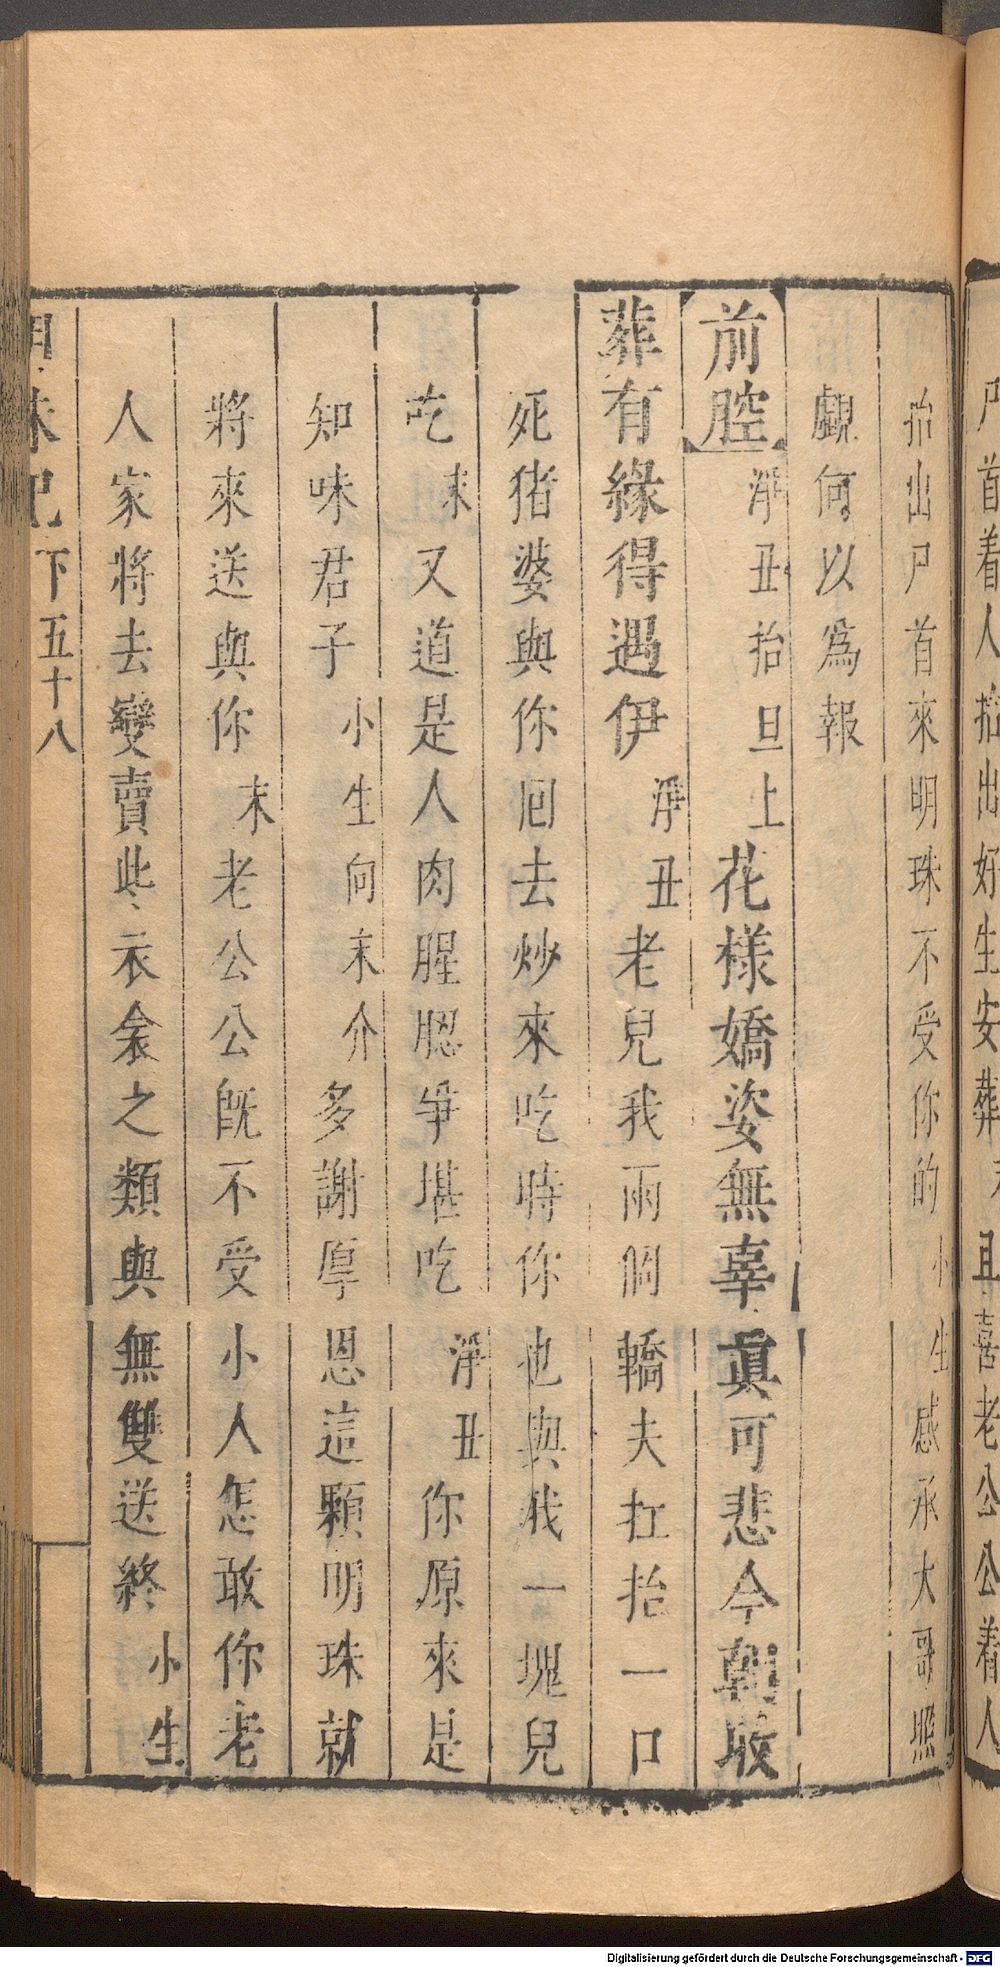 尸首着人抬出好生安葬 且喜老公公着人
抬出尸首來明珠不受你的小生感承大哥照
覷何以為報
前腔淨丑抬旦上花樣嬌姿無辜真可悲今朝收
葬有緣得遇伊淨丑老兒我兩個轎夫扛抬一口
死猪婆與你囘去炒來吃時你也與我一塊兒
吃末又道是人肉腥腮爭堪吃淨丑你原來是
知味君子小生向末介多謝厚恩這顆明珠就
將來送與你末老公公旣不受小人怎敢你老
人家將去變賣些衣衾之類與無雙送終小生
明珠記下五十八
Digitalisierung gefördert durch die Deutsche Forschungsgemeinschaft - DFG